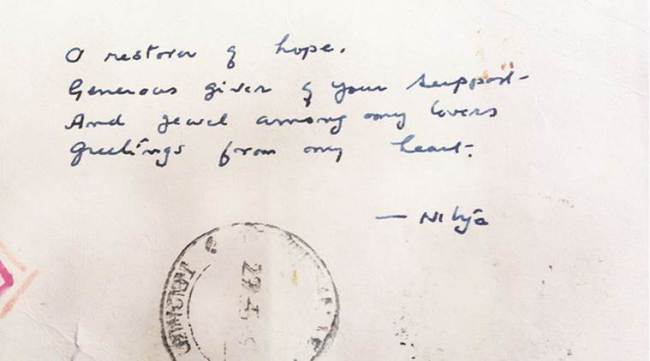 O restorer of hope.
Generous giver of your support-
And jewel among my lovers
Greetings from my heart.
— Nitya